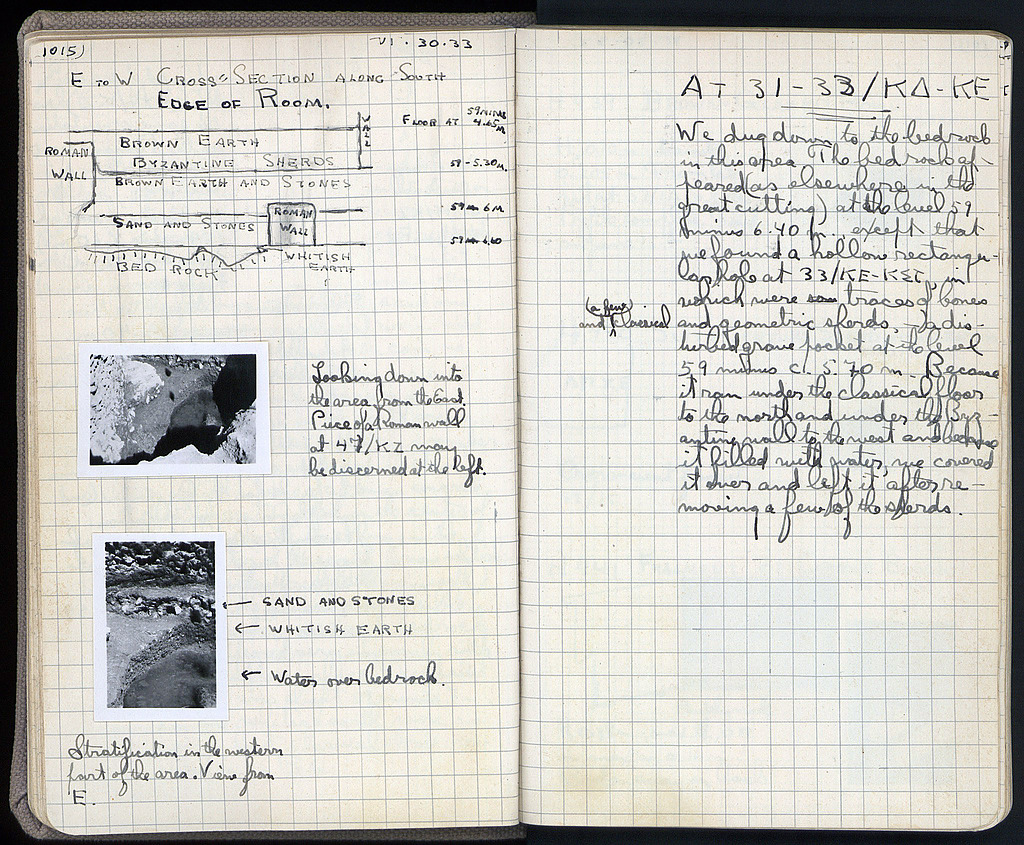 1015)
VI · 30·33
E TO W CROSS-SECTION ALONG SOUTH
EDGE OF ROOM.
WALL
FLOOR AT 59 MINUS 4.65 M
BROWN EARTH
ROMAN
WALL
BYZANTINE SHERDS
59 - 5.30 M.
BROWN EARTH AND STONES
59 - 6 M
SAND AND STONES
ROMAN
WALL
59 - 6.40
BED ROCK
WHITISH
EARTH
Looking down into
the area from the East.
Piece of a Roman wall
at 47/KZ may
be discerned at the left.
← SAND AND STONES
← WHITISH EARTH
← Water over bedrock.
Stratification in the western
part of the area. View from
E.
AT 31-33/ΚΔ-ΚΕ
We dug down to the bedrock
in this area. The bedrock ap-
peared (as elsewhere in the
great cutting) at the level 59
minus 6.40 m. except that
we found a hollow rectangu-
lar hole at 33/ΚΕ-ΚΣΤ, in
which were traces of bones
and geometric (a few)
and classical sherds, a dis-
turbed grave pocket at the level
59 minus c. 5.70 m. Because
it ran under the classical floor
to the north and under the Byz-
antine wall to the west and because
it filled with water, we covered
it over and left it after re-
moving a few of the sherds.